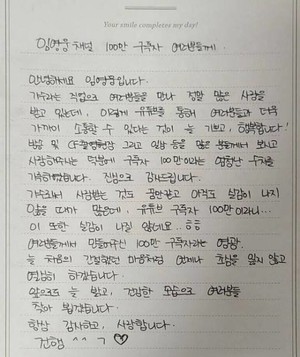 Your smile completes my day!
임영웅 채널 100만 구독자 여러분들께.
안녕하세요 임영웅입니다.
가수라는 직업으로 여러분들을 만나 정말 많은 사랑을
받고 있는데, 이렇게 유튜브를 통해 여러분들과 더욱
가까이 소통할 수 있다는 것이 늘 기쁘고, 행복합니다!
방송 및 CF촬영현장 그리고 일상 등을 많은 분들께서 보시고
사랑해주시는 덕분에 구독자 100만이라는 엄청난 수치를
기록하였습니다. 진심으로 감사드립니다.
가수로서 사랑받는 것도 꿈만같고 아직도 실감이 나지
않을 때가 많은데, 유튜브 구독자 100만이라니...
이 또한 실감이 나질 않네요.. ㅎㅎ
여러분들께서 만들어주신 100만 구독자라는 영광.
늘 처음의 간절했던 마음처럼 언제나 초심을 잃지 않고
열심히 하겠습니다.
앞으로도 늘 밝고, 건강한 모습으로 여러분들
찾아 뵙겠습니다.
항상 감사하고, 사랑합니다.
건행 ^^ ㄱ ♡